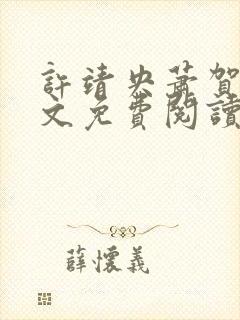 許靖央蕭賀
文免費閱讀
薛懷義